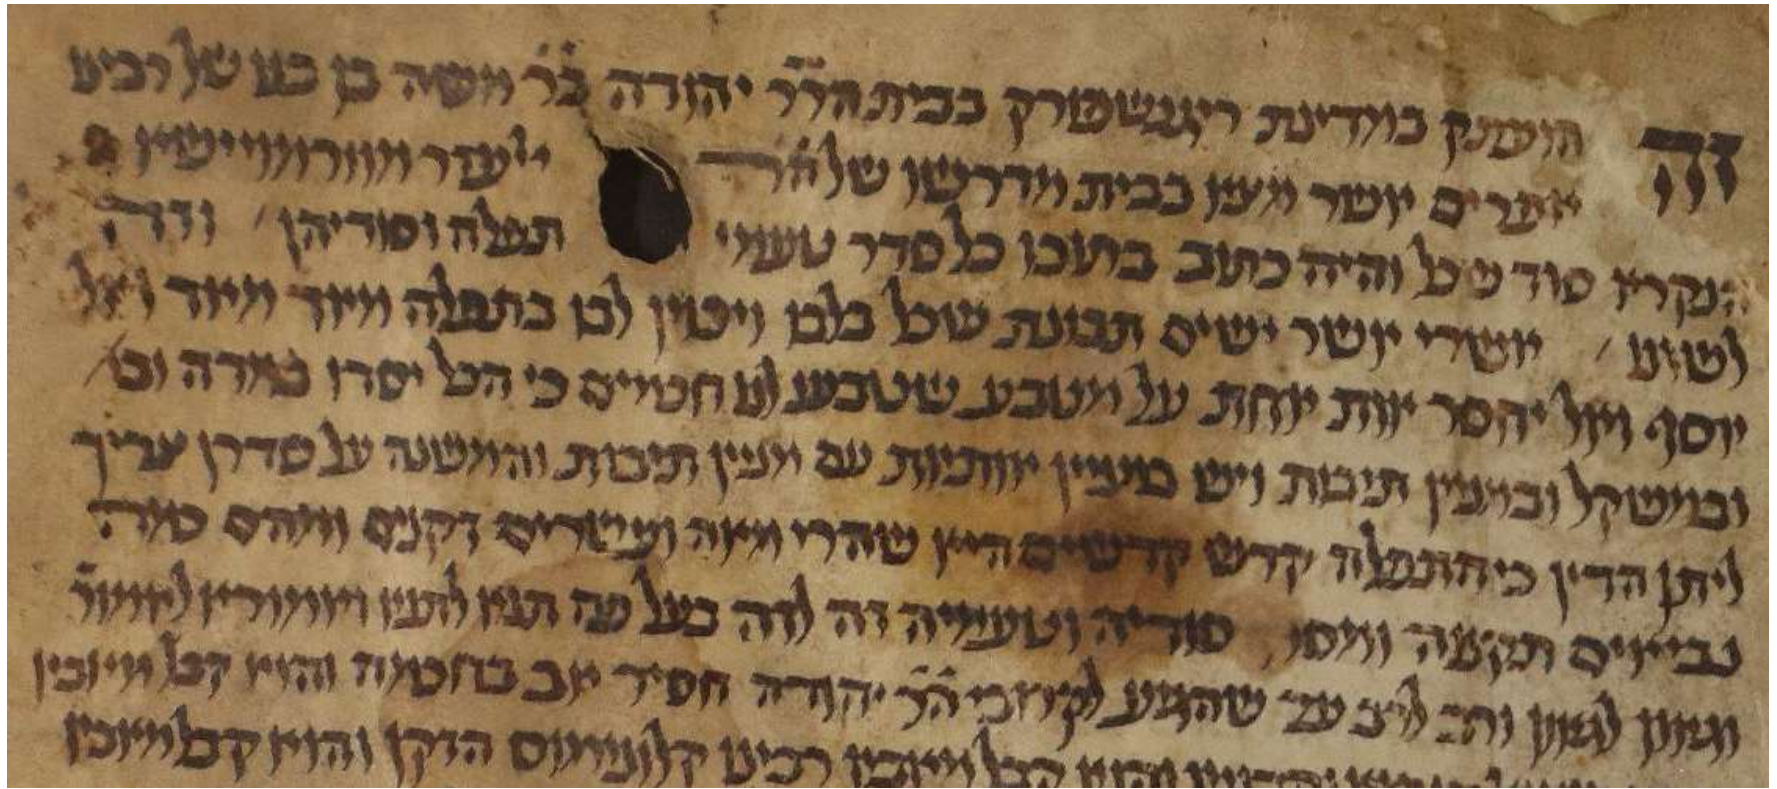 זה הועתק במדינת ריגנשפורק בבית הר״ר יהודה בר׳ משה בן בנו של רבינו
אפרים אשר מצא בבית מדרשו של הר׳ לעזר מוורמיישא
הנקרא סוד שכל והיה כתוב בתוכו כל סדר טעמי תפלה וסודיהן וזה
לשונו אשרי אשר ישים תבונת שכל בלבו ויכוין לבו בתפלה מאוד מאוד ואל
יוסף ואל יחסר אות אחת על מטבע שטבעו לנו חכמים כי הכל יסדו במדה
ובמשקל ובמניין תיבות ויש מניין אותיות עם מניין תיבות והמשנה על סדרן צריך
ליתן הדין כי התפלה קדש קדשים היא שהרי מאה ועשרים זקנים ומהם כמה
נביאים תקנוה ומסרו סודיה וטעמיה זה לזה בעל פה תנא לתנא ואמורא לאמור׳
וגאון לגאון ורב לרב עד שהגיע לקרובי הר״ר יהודה חסיד אב בחכמה והוא קבל מאביו
והוא קבל מאביו רבינו קלונימוס הזקן והוא קבל מאביו